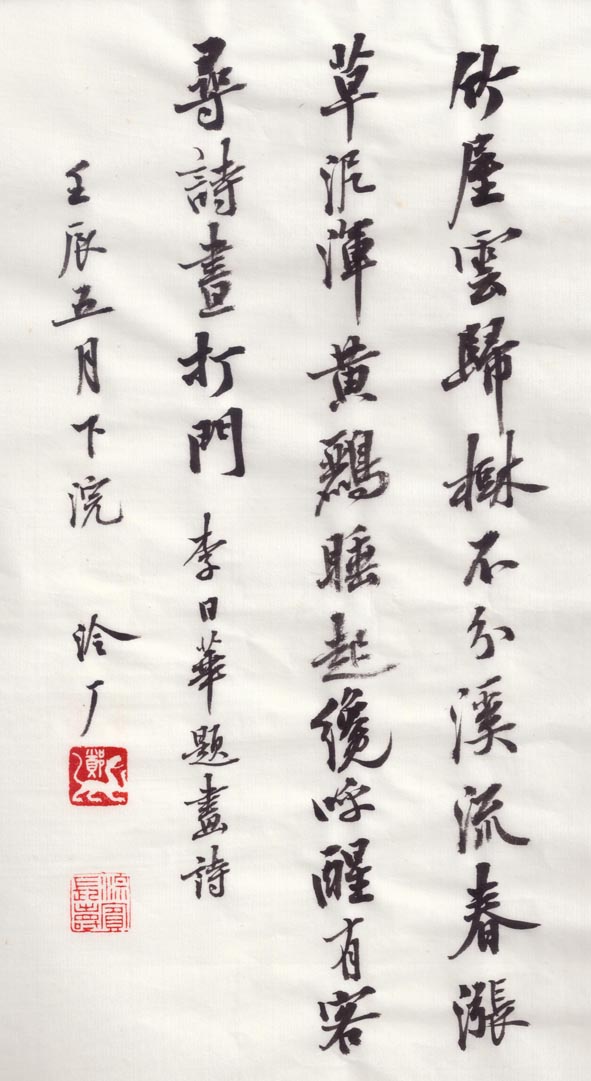 竹屋雲歸樹不分溪流春漲
草泥渾黃鸝睡起纔呼醒有客
尋詩晝打門 李日華題畫詩
壬辰五月下浣 泠厂
鄭
長壽